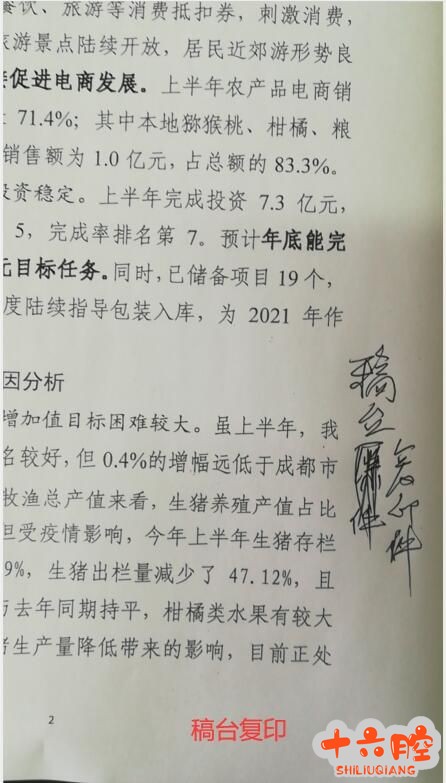 餐饮、旅游等消费抵扣券，刺激消费，
旅游景点陆续开放，居民近郊游形势良
促进电商发展。上半年农产品电商销
71.4%；其中本地猕猴桃、柑橘、粮
销售额为 1.0 亿元，占总额的 83.3%。
投资稳定。上半年完成投资 7.3 亿元，
5，完成率排名第 7。预计年底能完
元目标任务。同时，已储备项目 19 个，
度陆续指导包装入库，为 2021 年作
因分析
增加值目标困难较大。虽上半年，我
名较好，但 0.4%的增幅远低于成都市
牧渔总产值来看，生猪养殖产值占比
但受疫情影响，今年上半年生猪存栏
9%，生猪出栏量减少了 47.12%，且
与去年同期持平，柑橘类水果有较大
生产量降低带来的影响，目前正处
稿台
复印件
2
稿台复印
十六腔
SHILIUQIANG